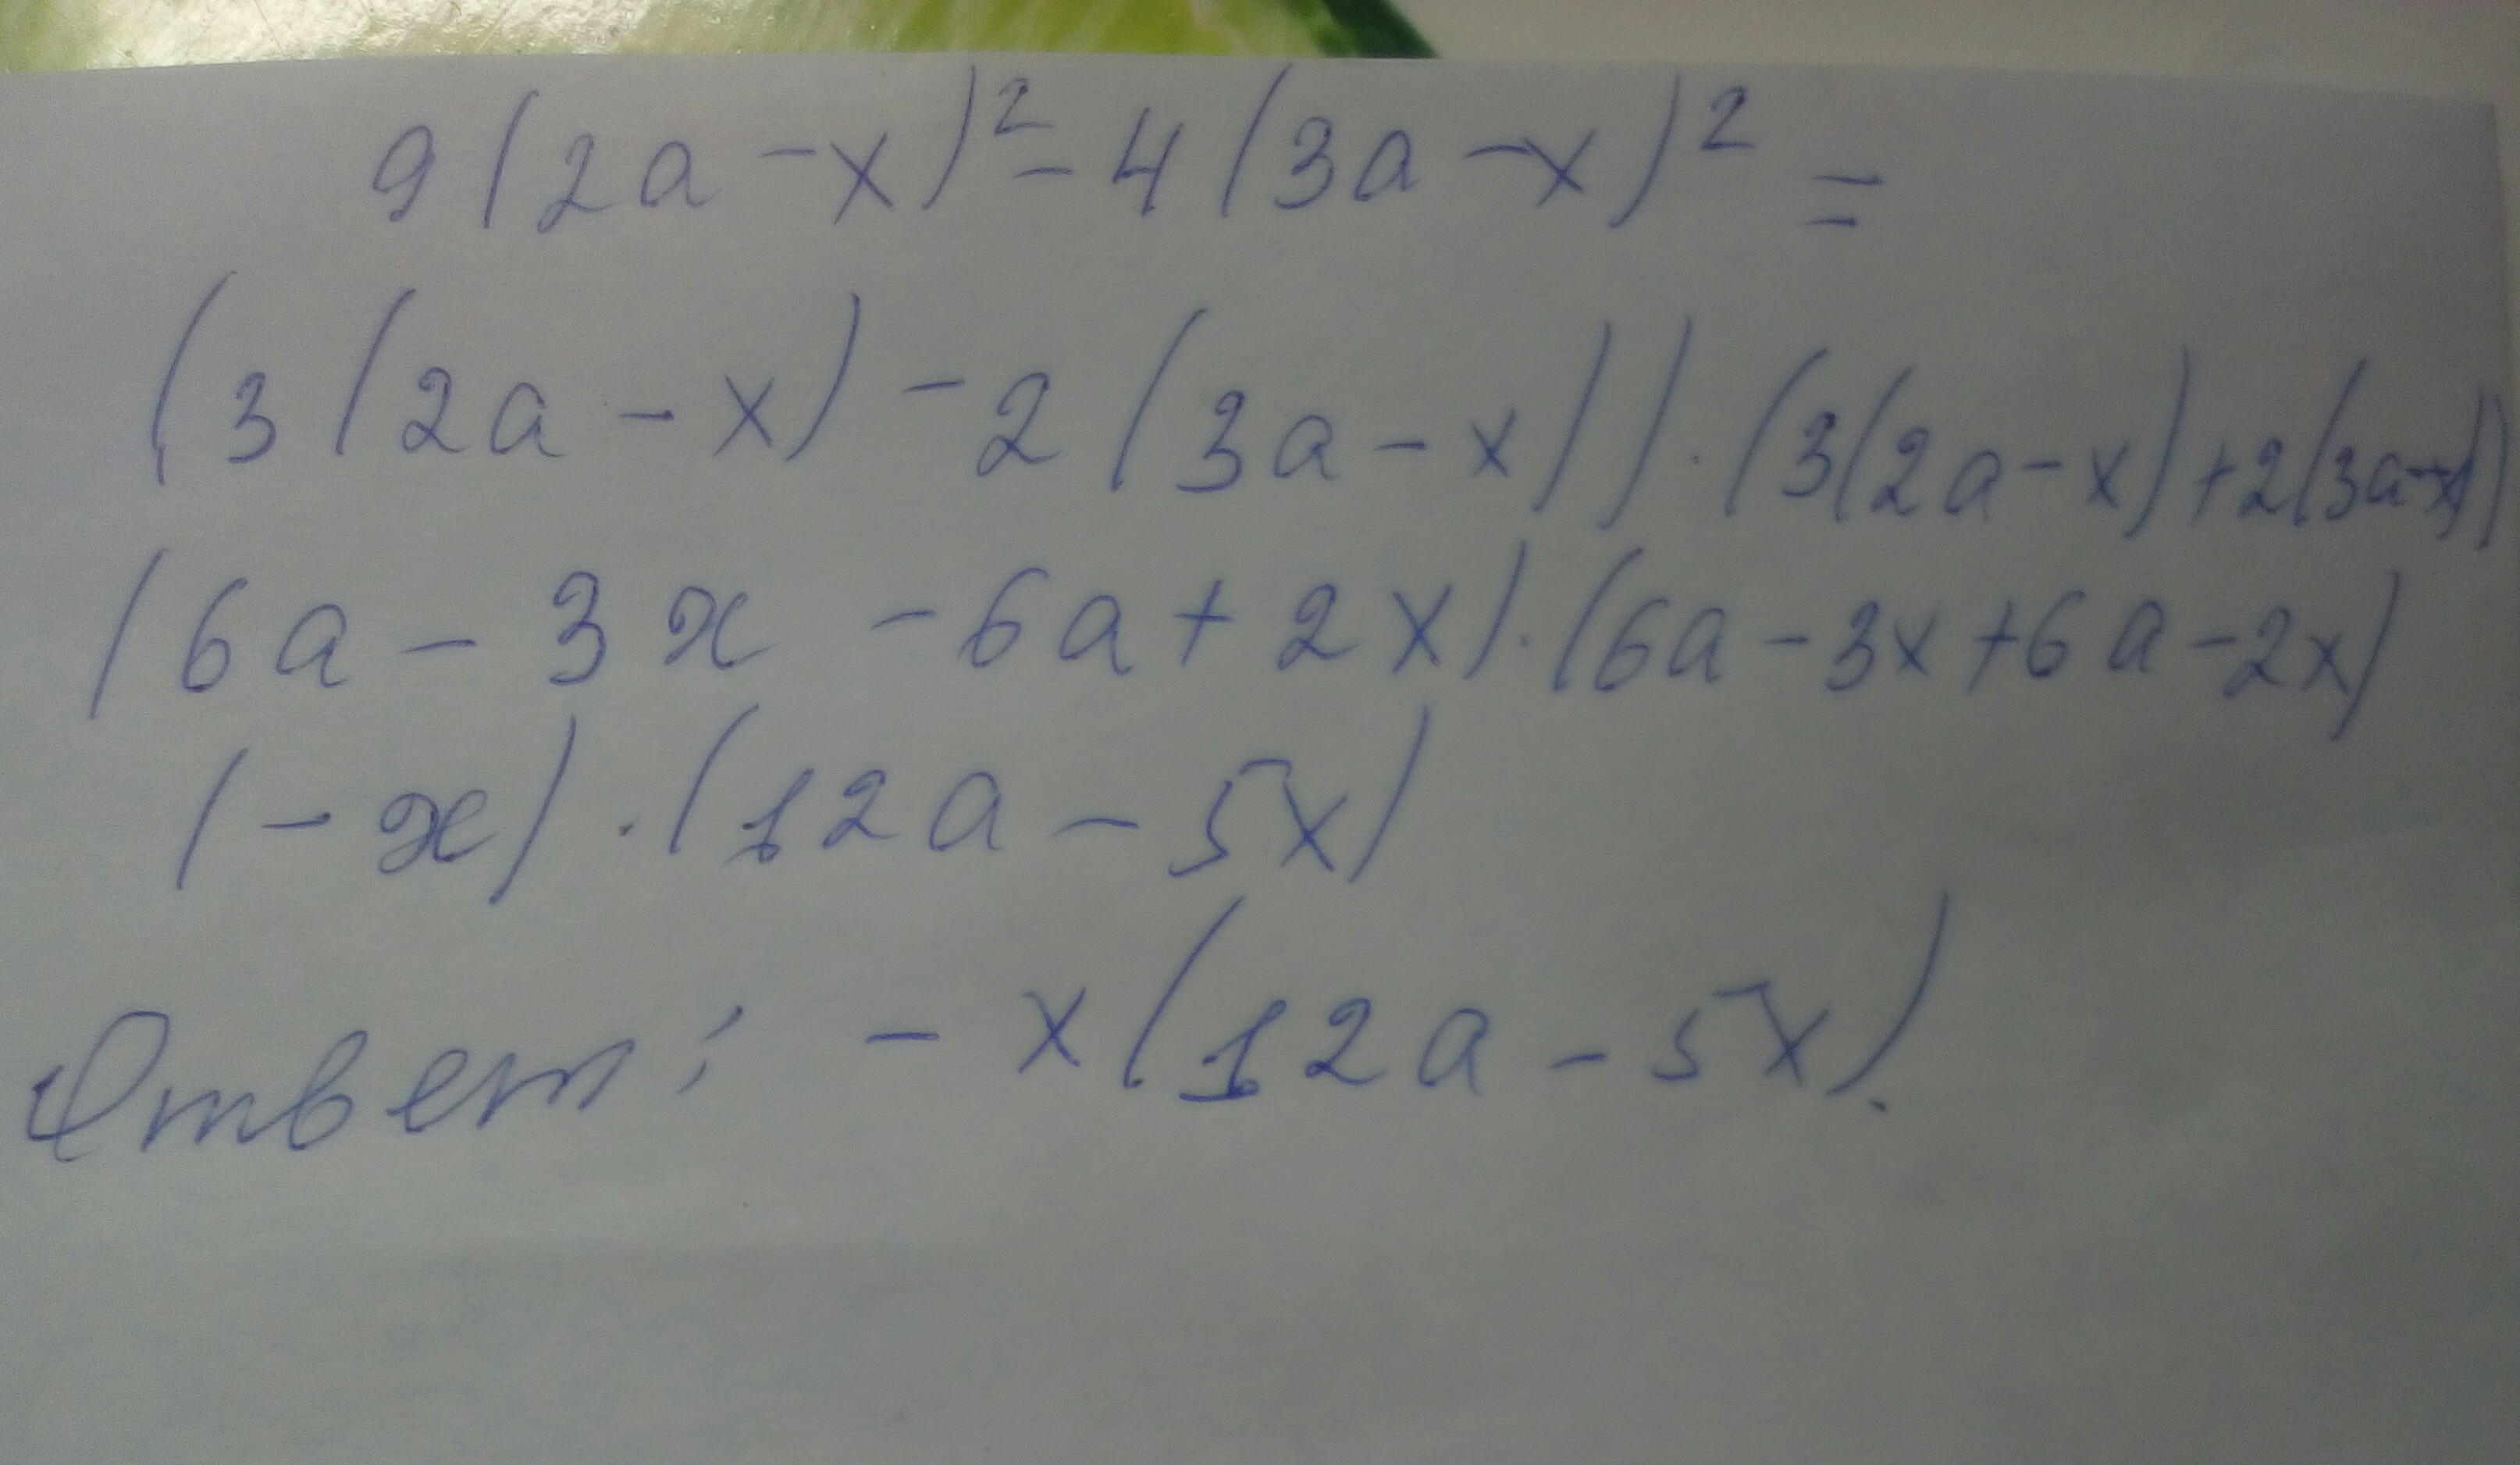 9(2a-x)²-4(3a-x)²=
(3(2a-x)-2(3a-x))·(3(2a-x)+2(3a-x))
(6a-3x-6a+2x)·(6a-3x+6a-2x)
(-x)·(12a-5x)
Ответ: -x(12a-5x).